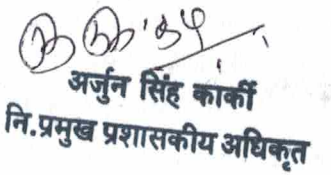 अर्जुन सिंह कार्की
नि.प्रमुख प्रशासकीय अधिकृत